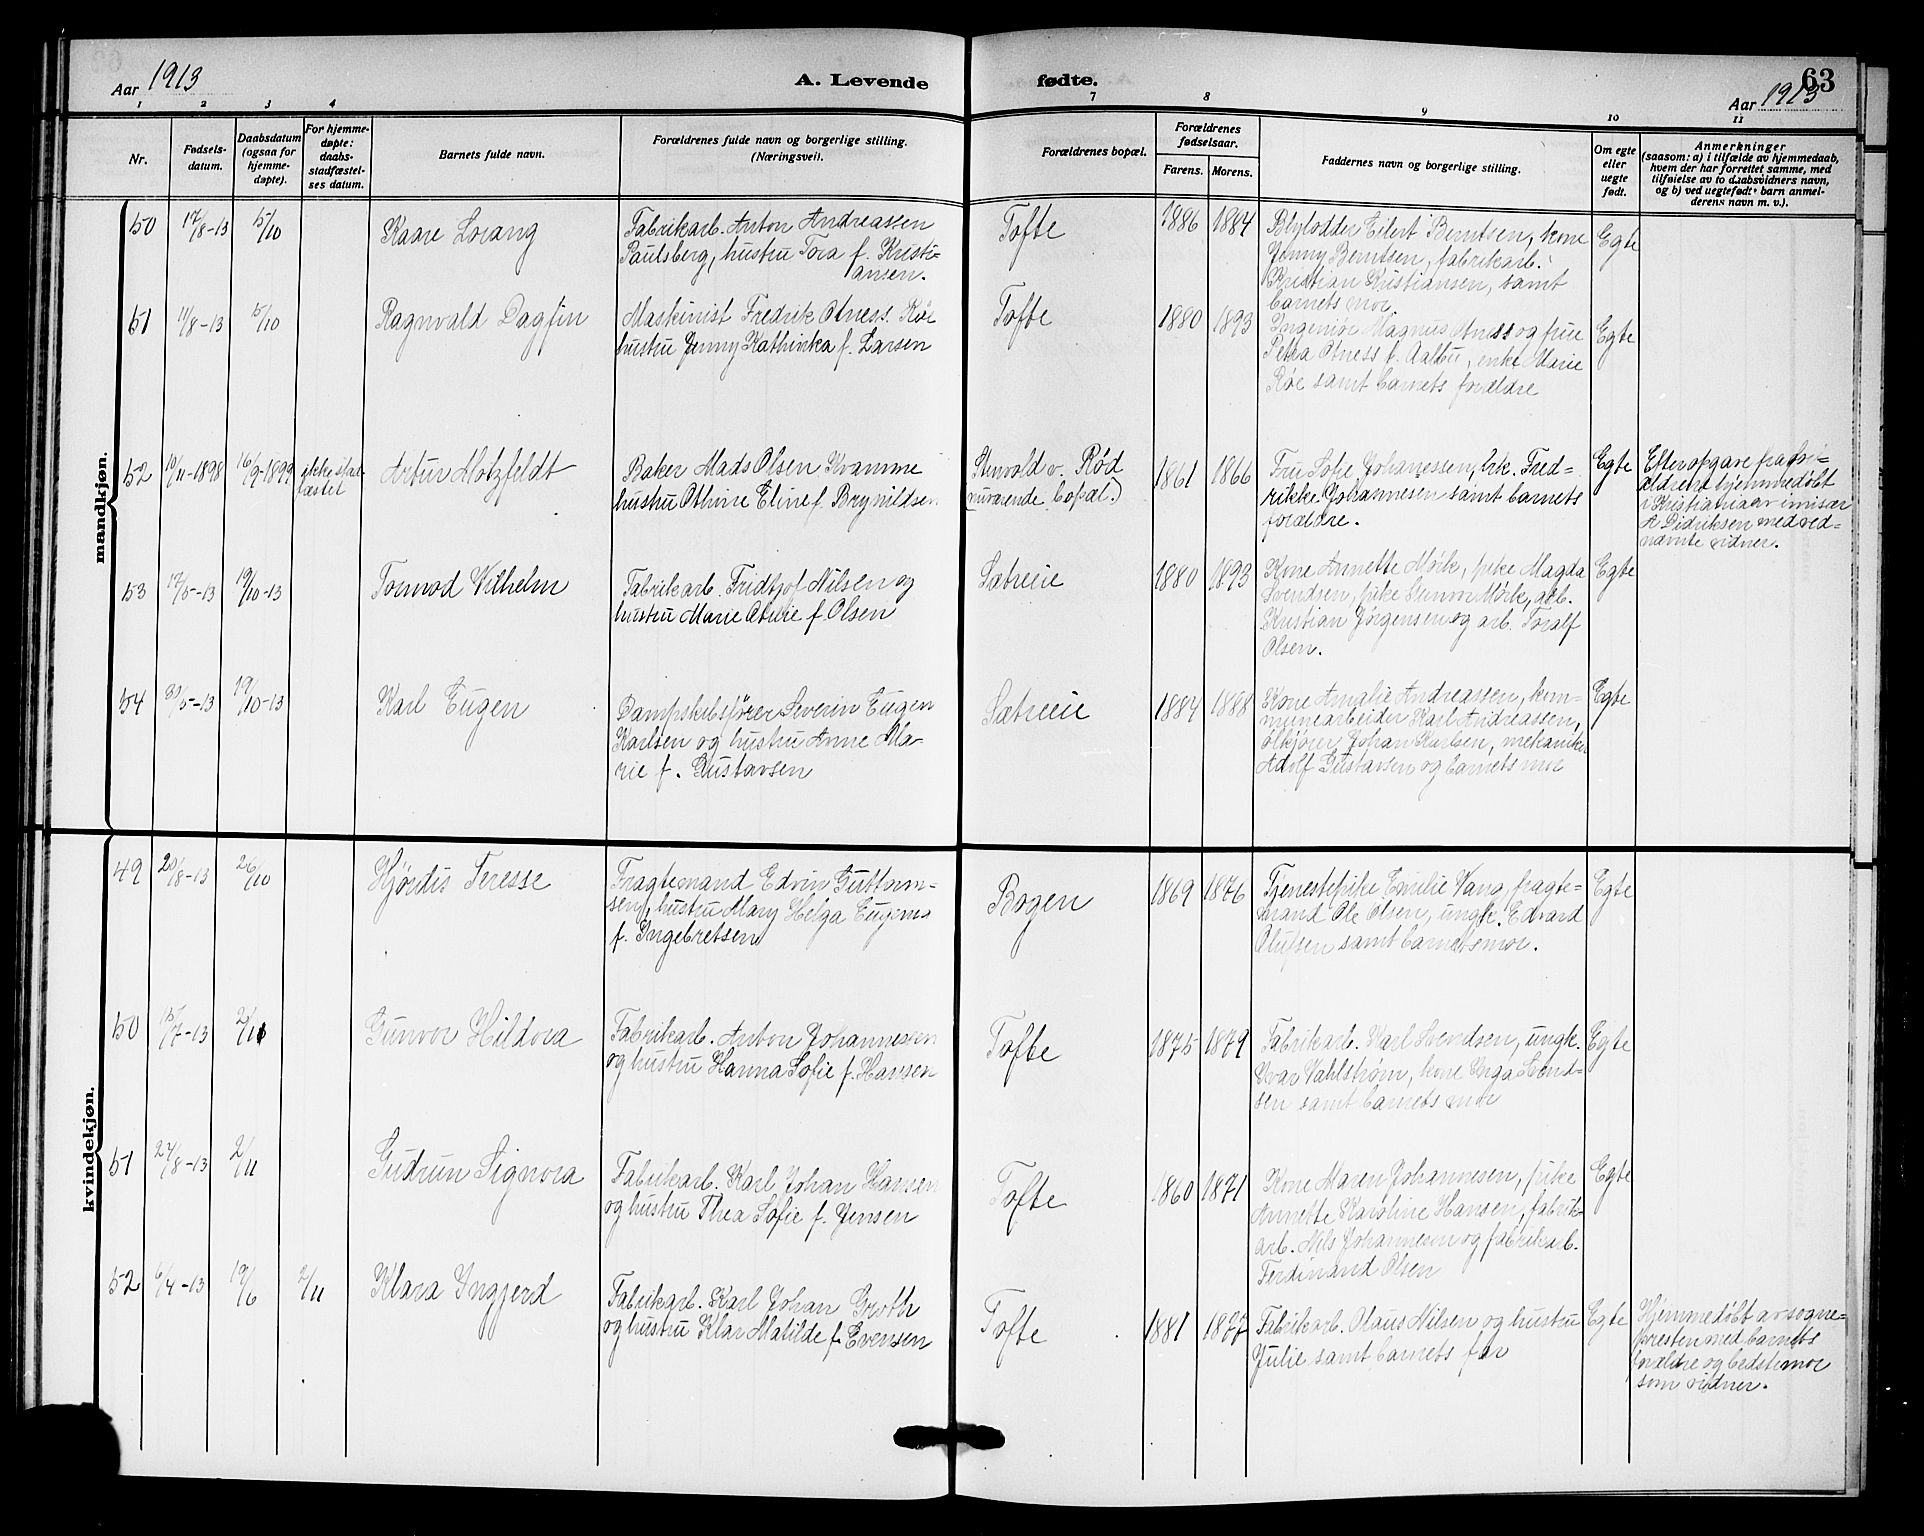 Aar 1913
A. Levende
fødte.
63
Aar 1913
1 2 3 4
7 8 9 10 11
Nr.
Fødsels-
datum.
Daabsdatum
(ogsaa for
hjemme-
døpte).
For hjemme-
døpte:
daabs-
stadfæstel-
ses datum.
Barnets fulde navn.
Forældrenes fulde navn og borgerlige stilling.
(Næringsvei).
Forældrenes bopæl.
Forældrenes
fødselsaar.
Farens. Morens.
Faddernes navn og borgerlige stilling.
Om egte
eller
uegte
født.
Anmerkninger
(saasom: a) i tilfælde av hjemmedaab,
hvem der har forrettet samme, med
tilføielse av to daabsvidners navn,
og b) ved uegtefødt barn anmel-
derens navn m. v.).
mandkjøn.
50
17/8-13
5/10
Kaare Lorang
Fabrikarb. Anton Andreassen
Paulsberg, hustru Tora f. Kristi-
ansen.
Tofte
1886
1884
Eilert Berntsen, kone
Jenny Berntsen, fabrikarb.
Kristian Kristiansen, samt
barnets mor.
Egte
51
11/8-13
5/10
Ragnvald Dagfin
Maskinist Fredrik Otness Røe
hustru Jenny Kathinka f. Larsen
Tofte
1880
1893
Ingeniør Magnus Otness og frue
Petra Otness f. Aalbu, enke Marie
Røe samt barnets forældre
Egte
52
10/11-1898
16/9-1899
ikke stad-
fæstet
Artur Motzfeldt
Baker Mads Olsen Kvamme
hustru Othine Eline f. Brynildsen
Stenvold v. Rød
(nuværende bopæl.)
1861
1866
Fru Sofie Johannessen, frk. Fred-
rikke Johannesen samt barnets
forældre.
Egte
Efter opgave fra for-
ældrene hjemmedøbt
i Kristiania av
A Didriksen med ved-
nævnte vidner.
53
17/5-13
19/10-13
Tormod Vilhelm
Fabrikarb. Fridtjof Nilsen og
hustru Marie Otilie f. Olsen
Sætreeie
1880
1893
Kone Annette Mørk, pike Magda
Svendsen, pike Gunvor Mørk, arb.
Kristian Jørgensen og arb. Toralf
Olsen.
Egte
54
30/5-13
19/10-13
Karl Eugen
Dampskibsfører Severin Eugen
Karlsen og hustru Anne Ma-
rie f. Gustavsen
Sætreeie
1884
1888
Kone Amalie Andreassen, kom-
munearbeider Karl Andreassen,
ølkjører Johan Karlsen, mekaniker
Adolf Gustavsen og barnets mor
Egte
kvindekjøn.
49
20/8-13
26/10
Hjørdis Teresse
Fragtemand Edvin Guttorm-
sen, hustru Mary Helga Eugenia
f. Ingebretsen
Bogen
1869
1876
Tjenestepike Emilie Vang, fragte-
mand Ole Olsen, ungk. Edvard
Olufsen samt barnets mor.
Egte
50
15/7-13
2/11
Gunvor Hildora
Fabrikarb. Anton Johannessen
og hustru Hanna Sofie f. Hansen
Tofte
1875
1879
Fabrikarb. Karl Svendsen, ungk.
Ivar Vahlstrøm, kone Inga Svend-
sen samt barnets mor
Egte
51
27/8-13
2/11
Gudrun Signora
Fabrikarb. Karl Johan Hansen
og hustru Thea Sofie f. Jensen
Tofte
1860
1871
Kone Maren Johannesen, pike
Annette Karoline Hansen, fabrik-
arb. Nils Johannesen og fabrikarb.
Ferdinand Olsen
Egte
52
6/4-13
19/6
2/11
Klara Ingjerd
Fabrikarb. Karl Johan Groth
og hustru Klar Matilde f. Evensen
Tofte
1881
1877
Fabrikarb. Olaus Nilsen og hustru
Julie samt barnets far
Egte
Hjemmedøbt av sogne-
presten med barnets
forældre og bedstemor
som vidner.